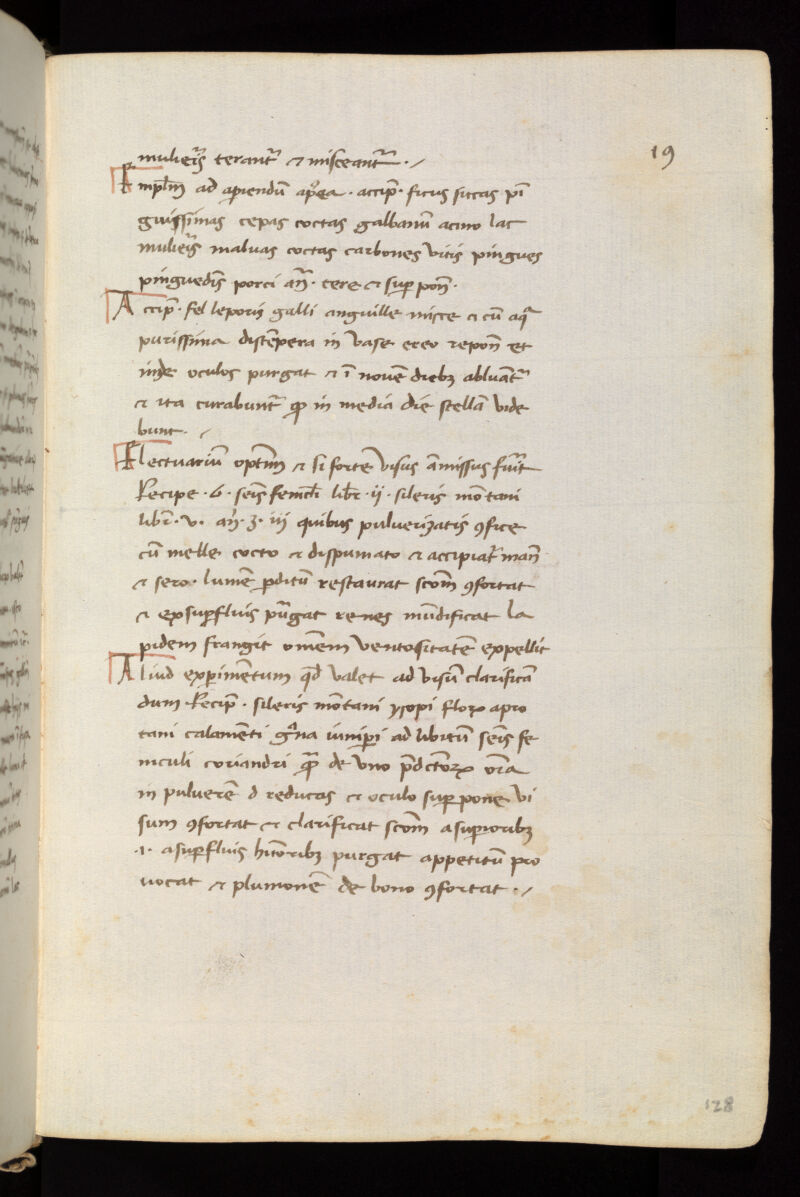 19
mulieris terant̃ & misceant̃ ./
Emplm̃ ad apiendũ ap̃ea . accip̃ . ficus siccas pi
guissimas cepas coctas galbanũ acino lac
mulieris maluas coctas carbones vitis pingues
pinguedis porci añ . cere & suppoñ .
Accip̃ . fel leporis galli anguille misce & cũ aqᷓ
purissima distẽpera in vase ereo repoñ et
inde oculos purgat & ĩ nouẽ diebꝫ abluãt̃
& ita curabunt̃ ꝙ in media die stellã vide
bunt . /
Electuariũ optm̃ & si forte visus ãmissus fuit̃
Recipe . 6 . seis fenicli libr . ii . sileris mõtani
libr . v . añ . ʒ . iii quibus pulueriȝatis ꝯfice
cũ melle cocto & dispumato & accipiat̃ mañ
& sero . lumẽ ꝑditũ restaurat scom̃ ꝯfortat
& ex supfluis pũgat renes mũdificat la
pidem frangit omẽm ventositatẽ expellit
Aliud expimentum qd̃ valet ad visũ clarificã
dum . Recip̃ . sileris mõtani ysopi floꝝ apro
tani calamẽti gᷓna iunipi ad libitũ seis fe
niculi coriandri qᷓ de vno p̃dictoꝝ oĩa
in puluerẽ d reducas & oculo suppone vi
sum ꝯfortat & clarificat scom̃ a supioribꝫ
.i. a supfluis hũoribꝫ purgat appetitũ pro
uocat & plumonẽ de bono ꝯfortat . /
128